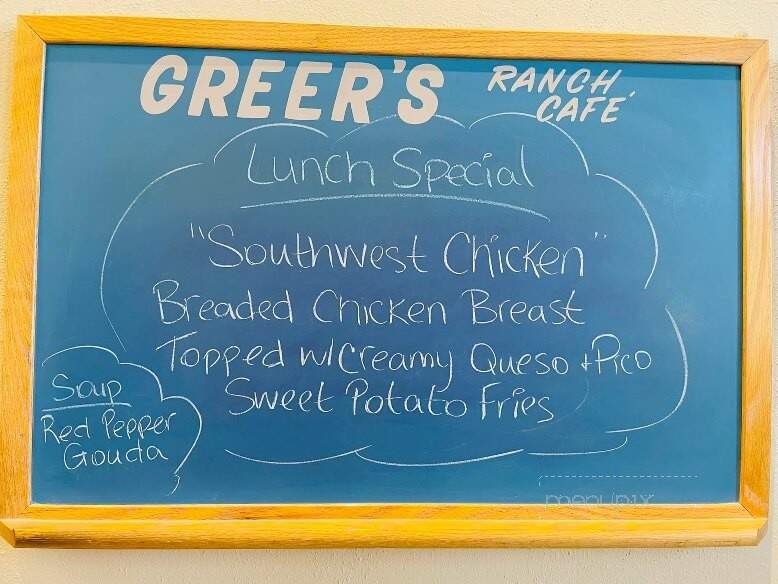 GREER'S RANCH CAFÉ
Lunch Special
"Southwest Chicken"
Breaded Chicken Breast
Topped w/Creamy Queso + Pico
Sweet Potato Fries
Soup
Red Pepper
Gouda
menupix